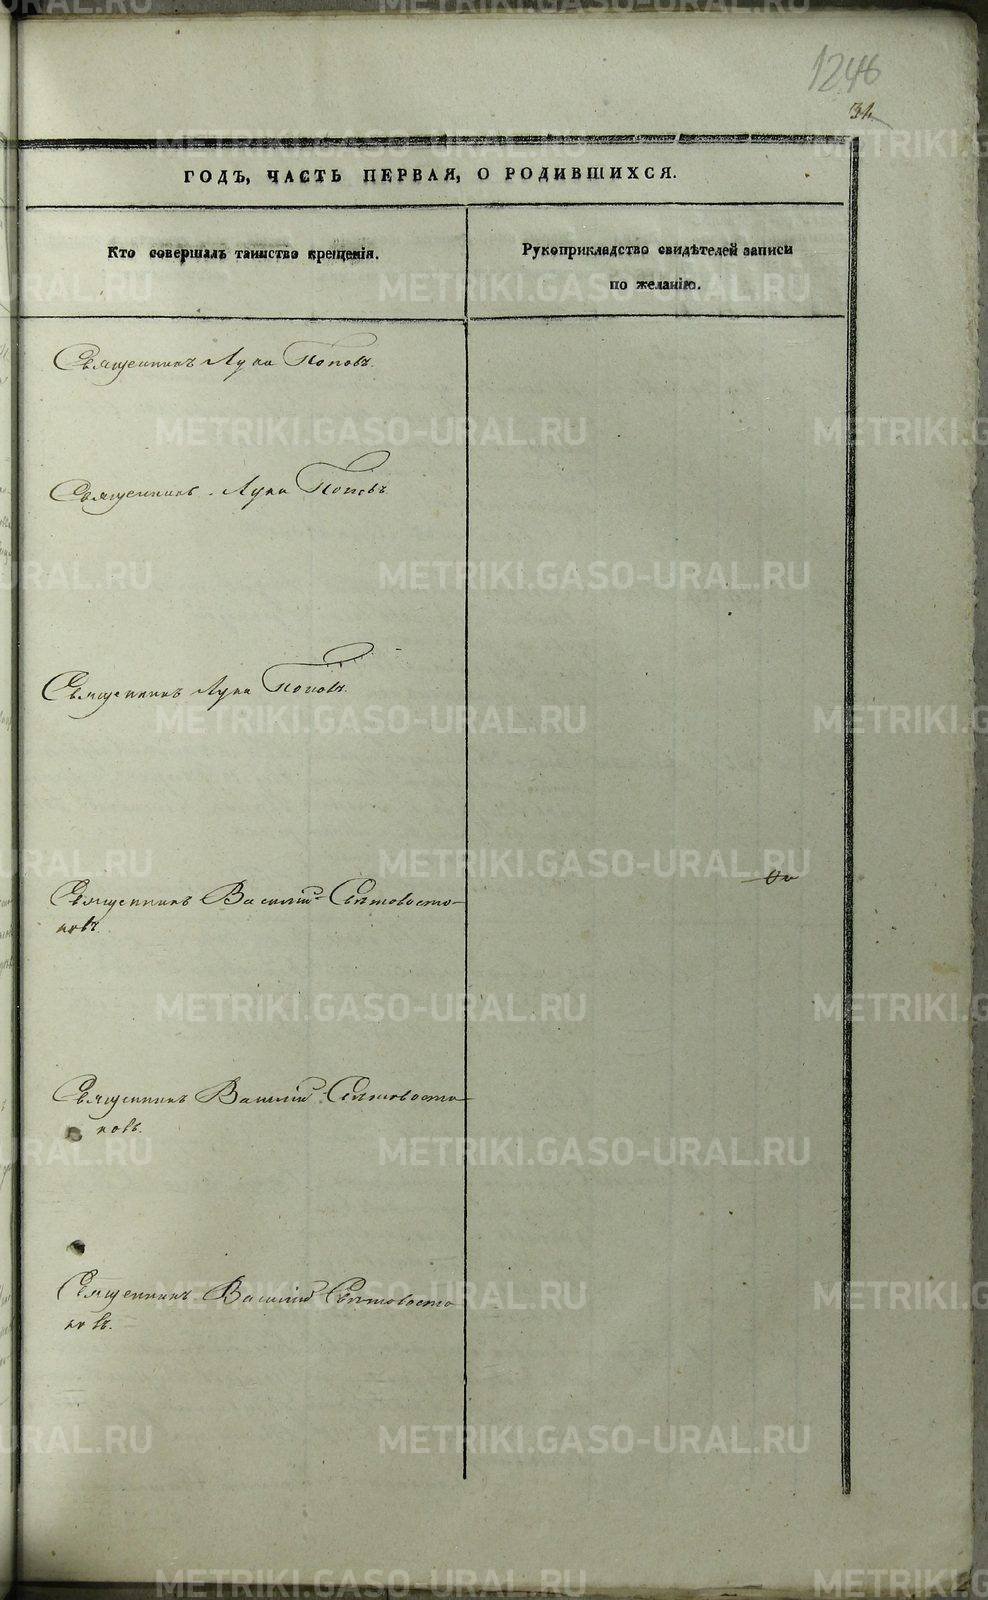 1246
34
ГОДЪ, ЧАСТЬ ПЕРВАЯ, О РОДИВШИХСЯ.
Кто совершалъ таинство крещенія.
Рукоприкладство свидѣтелей записи
по желанію.
Священникъ Лука Поповъ.
Священникъ Лука Поповъ.
Священникъ Лука Поповъ.
Священникъ Василій Свѣтовосто-
ковъ.
Священникъ Василій Свѣтовосто-
ковъ.
Священникъ Василій Свѣтовосто
ковъ.
METRIKI.GASO-URAL.RU